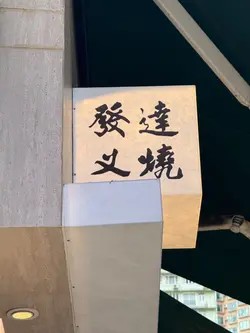 發達
义燒